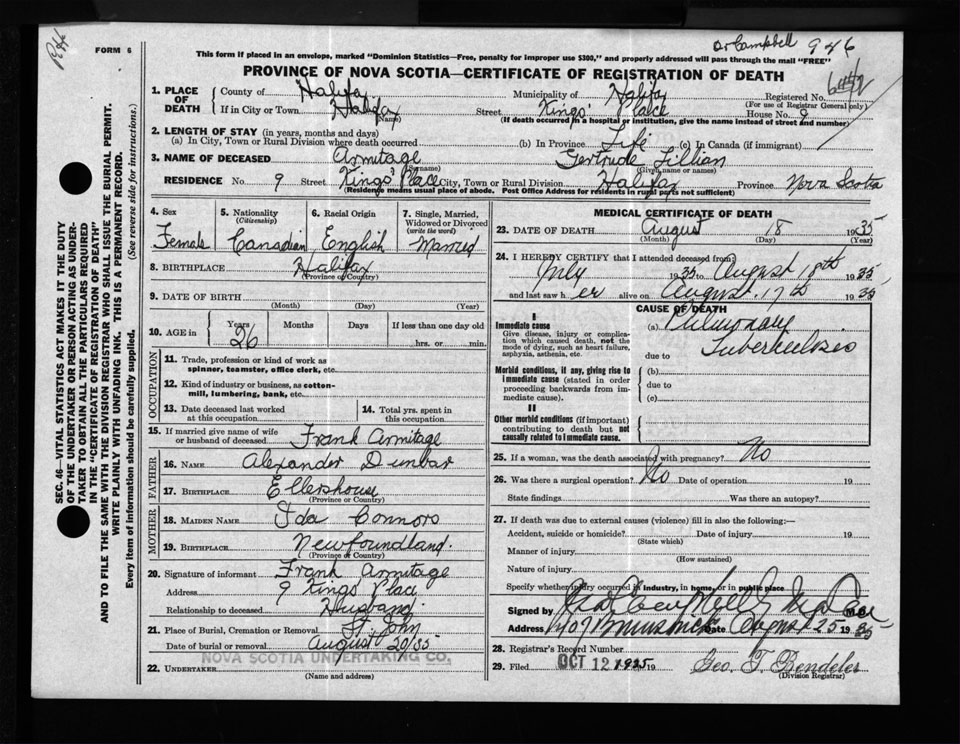 Dr Campbell 946
FORM 6
This form if placed in an envelope, marked "Dominion Statistics—Free, penalty for improper use $300," and properly addressed will pass through the mail "FREE"
PROVINCE OF NOVA SCOTIA—CERTIFICATE OF REGISTRATION OF DEATH
SEC. 46—VITAL STATISTICS ACT MAKES IT THE DUTY
OF THE UNDERTAKER OR PERSON ACTING AS UNDER-
TAKER TO OBTAIN ALL THE PARTICULARS REQUIRED
IN THE "CERTIFICATE OF REGISTRATION OF DEATH"
AND TO FILE THE SAME WITH THE DIVISION REGISTRAR WHO SHALL ISSUE THE BURIAL PERMIT.
WRITE PLAINLY WITH UNFADING INK. THIS IS A PERMANENT RECORD.
Every item of information should be carefully supplied. (See reverse side for instructions.)
1. PLACE OF DEATH County of Halifax Municipality of Halifax Registered No.
(For use of Registrar General only)
If in City or Town Halifax Street Kings' Place House No. 9
(Name) (If death occurred in a hospital or institution, give the name instead of street and number)
2. LENGTH OF STAY (in years, months and days)
(a) In City, Town or Rural Division where death occurred (b) In Province Life (c) In Canada (if immigrant)
3. NAME OF DECEASED Armitage Gertrude Lillian
(Surname) (Given name or names)
RESIDENCE No. 9 Street Kings' Place City, Town or Rural Division Halifax Province Nova Scotia
(Residence means usual place of abode. Post Office Address for residents in rural parts not sufficient)
4. Sex 5. Nationality 6. Racial Origin 7. Single, Married,
(Citizenship) Widowed or Divorced
(write the word)
Female Canadian English Married
8. BIRTHPLACE Halifax
(Province or Country)
9. DATE OF BIRTH
(Month) (Day) (Year)
10. AGE in Years Months Days If less than one day old
26 hrs. or min.
OCCUPATION
11. Trade, profession or kind of work as
spinner, teamster, office clerk, etc.
12. Kind of industry or business, as cotton-
mill, lumbering, bank, etc.
13. Date deceased last worked 14. Total yrs. spent in
at this occupation this occupation
15. If married give name of wife
or husband of deceased Frank Armitage
FATHER
16. NAME Alexander Dunbar
17. BIRTHPLACE Ellershouse
(Province or Country)
MOTHER
18. MAIDEN NAME Ida Connors
19. BIRTHPLACE Newfoundland.
(Province or Country)
20. Signature of informant Frank Armitage
Address 9 Kings' Place
Relationship to deceased Husband
21. Place of Burial, Cremation or Removal St. John
Date of burial or removal August 20/35
NOVA SCOTIA UNDERTAKING CO.
22. UNDERTAKER
(Name and address)
MEDICAL CERTIFICATE OF DEATH
23. DATE OF DEATH August 18 1935
(Month) (Day) (Year)
24. I HEREBY CERTIFY that I attended deceased from
July 1935 to August 18th 1935
and last saw her alive on August 17th 1935
CAUSE OF DEATH
I
Immediate cause
Give disease, injury or complica-
tion which caused death, not the
mode of dying, such as heart failure,
asphyxia, asthenia, etc.
(a) Pulmonary
Tuberculosis
due to
Morbid conditions, if any, giving rise to
immediate cause (stated in order
proceeding backwards from im-
mediate cause).
(b)
due to
(c)
II
Other morbid conditions (if important)
contributing to death but not
causally related to immediate cause.
25. If a woman, was the death associated with pregnancy? No
26. Was there a surgical operation? No Date of operation 19
State findings Was there an autopsy?
27. If death was due to external causes (violence) fill in also the following:—
Accident, suicide or homicide? Date of injury 19
(State which)
Manner of injury
(How sustained)
Nature of injury
Specify whether injury occurred in industry, in home, or in public place
Signed by M.D.
Address Brunswick Date August 25 1935
28. Registrar's Record Number
29. Filed OCT 12 1935 19 Geo. T. Bendeler
(Division Registrar)